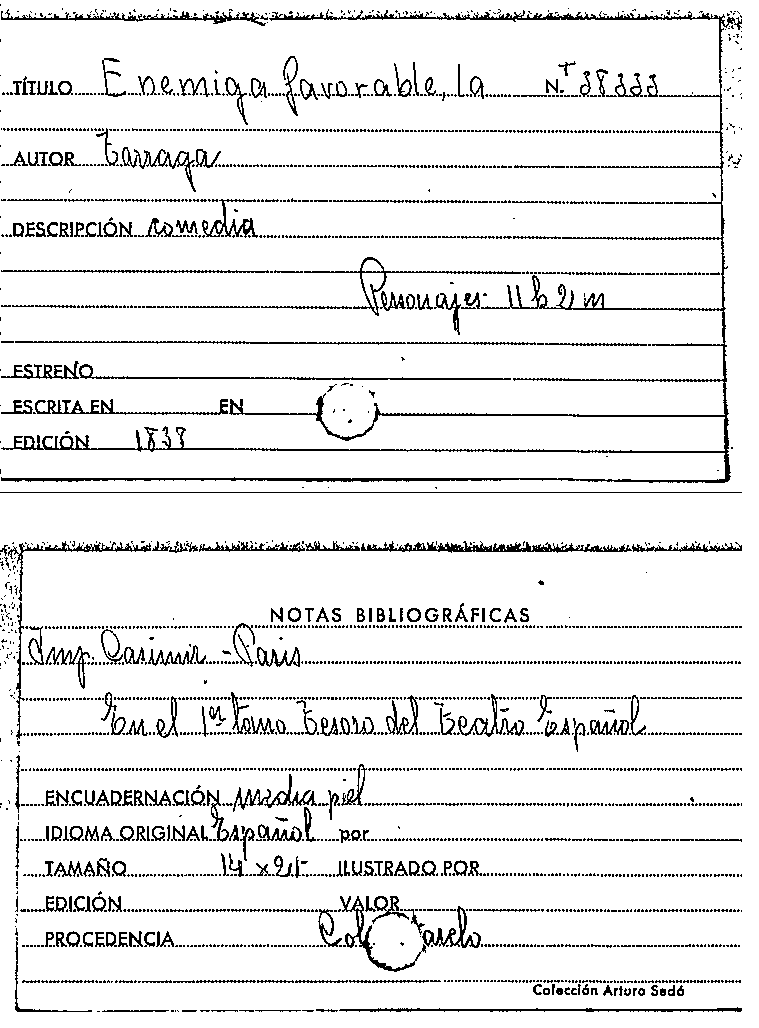 TÍTULO Enemiga favorable, la N.T 38333
AUTOR Tarraga
DESCRIPCIÓN comedia
Personajes 11 h 2 m
ESTRENO
ESCRITA EN EN
EDICIÓN 1838
NOTAS BIBLIOGRÁFICAS
Imp. Casimir - Paris
En el 1er tomo Tesoro del Teatro Español
ENCUADERNACIÓN media piel
IDIOMA ORIGINAL Español por
TAMAÑO 14 x 21 ILUSTRADO POR
EDICIÓN VALOR
PROCEDENCIA
Colección Arturo Sedó